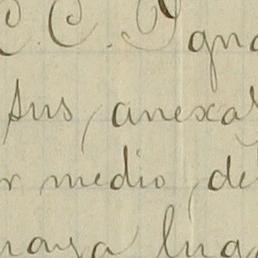 C. C. Igna
sus, anexa
r medio, de
naya lug